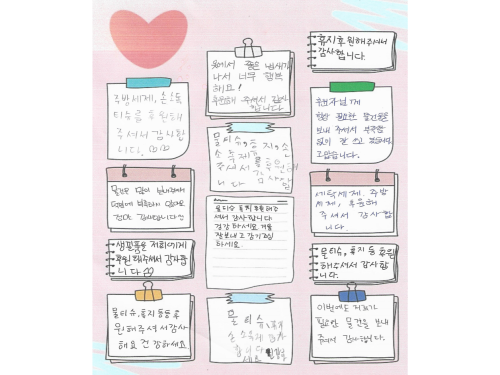 주방세제, 손소독
티슈를 후원해
주셔서 감사합
니다.
물건을 많이
생필품을 저희에게
후원해주셔서 감사합
니다
물티슈, 휴지 등등 후
원해주셔서 감사
해요 건강하세요
옷에서 좋은 냄새가
나서 너무 행복
해요!
후원해 주셔서 감사
합니다
물티슈, 휴지, 손
소독제
니다
물티슈 휴지 후원해주
셔서 감사합니다
건강하세요 겨울
잘보내고 감기조심
하세요
물티슈, 휴지
손소독제 감사
합니다
휴지후원해주셔서
감사합니다.
후원자님께
항상 필요한 물건들을
보내 주셔서 부족함
없이 잘 쓰고 있어요
고맙습니다.
세탁세제, 주방
세제, 후원해
주셔서 감사합
니다.
물티슈, 휴지 등 후원
해주셔서 감사합
니다.
이번에도 저희가
필요한 물건을 보내
주셔서 감사합니다.